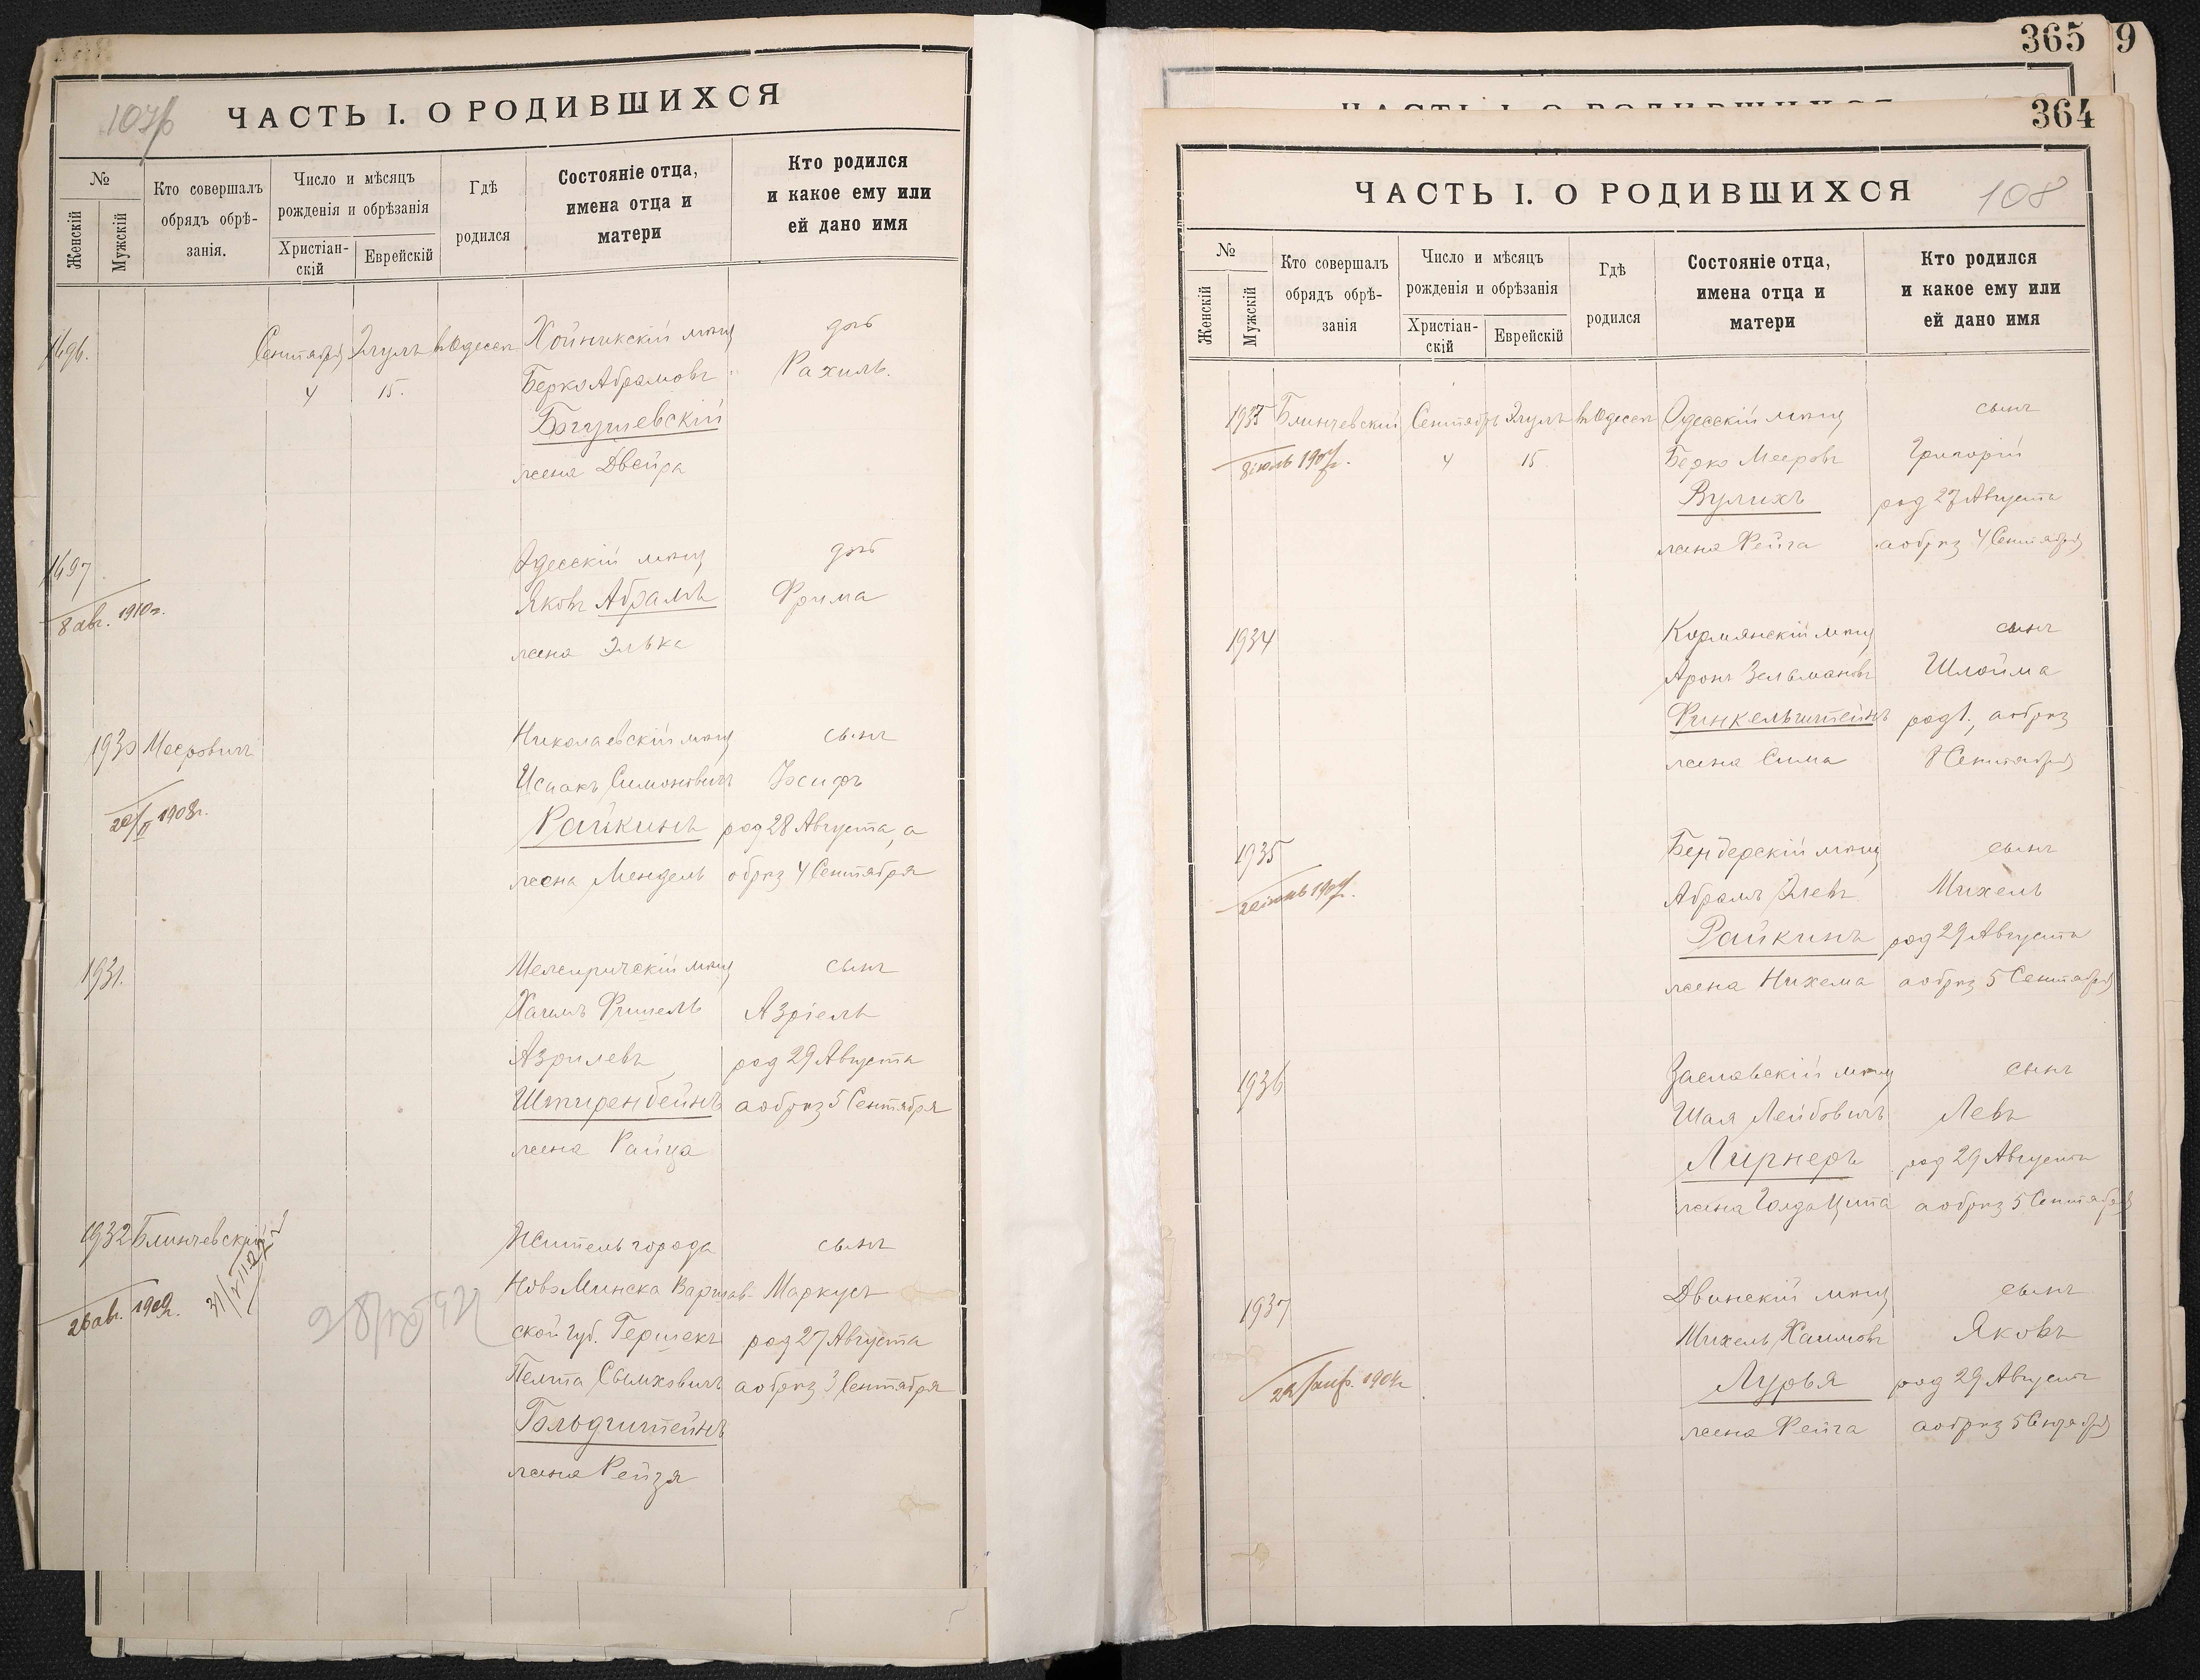 107б
ЧАСТЬ I. О РОДИВШИХСЯ
№
Женскій
Мужскій
Кто совершалъ
обрядъ обрѣ-
занія.
Число и мѣсяцъ
рожденія и обрѣзанія
Христіан-
скій
Еврейскій
Гдѣ
родился
Состояніе отца,
имена отца и
матери
Кто родился
и какое ему или
ей дано имя
1696. Сентября Элулъ въ Одессѣ Хойникскій мѣщ дочь
4 15. Берко Абрамовъ Рахиль.
Богушевскій
жена Двейра
1697 Одесскій мѣщ дочь
8 авг. 1910 г. Яковъ Абрамъ Фрима
жена Элька
1930 Меерович Николаевскій мѣщ сынъ
Исаакъ Симоновичъ Іосифъ
20/II 1908 г. Райкинъ род 28 Августа, а
жена Мендель обрѣз 4 Сентября
1931. Межиричскій мѣщ сынъ
Хаимъ Фишель Азріель
Азрилевъ род 29 Августа
Шпиренбейнъ а обрѣз 5 Сентября
жена Райца
1932 Блинчевскій Житель города сынъ
26 авг. 1909 г. Ново Минска Варшав- Маркусъ
ской губ. Гершекъ род 27 Августа
Пелта Сымховичъ а обрѣз 3 Сентября
Гольдштейнъ
жена Рейзя
365
9
364
ЧАСТЬ I. О РОДИВШИХСЯ
108
№
Женскій
Мужскій
Кто совершалъ
обрядъ обрѣ-
занія
Число и мѣсяцъ
рожденія и обрѣзанія
Христіан-
скій
Еврейскій
Гдѣ
родился
Состояніе отца,
имена отца и
матери
Кто родился
и какое ему или
ей дано имя
1933 Блинчевскій Сентябрь Элулъ въ Одессѣ Одесскій мѣщ сынъ
8 іюль 1907 г. 4 15 Берко Мееровъ Григорій
Вулихъ род 27 Августа
жена Фейга а обрѣз 4 Сентября
1934 Кормянскій мѣщ сынъ
Аронъ Зельмановъ Шлойма
Финкельштейнъ род 1., а обрѣз
жена Сима 8 Сентября
1935 Бендерскій мѣщ сынъ
Абрамъ Элевъ Михель
Райкинъ род 29 Августа
жена Нихема а обрѣз 5 Сентября
1936 Заславскій мѣщ сынъ
Шая Лейбовичъ Левъ
Лирнеръ род 29 Августа
жена Голда Ципа а обрѣз 5 Сентября
1937 Двинскій мѣщ сынъ
Михель Хаимовъ Яковъ
Лурья род 29 Августа
жена Фейга а обрѣз 5 Сентября